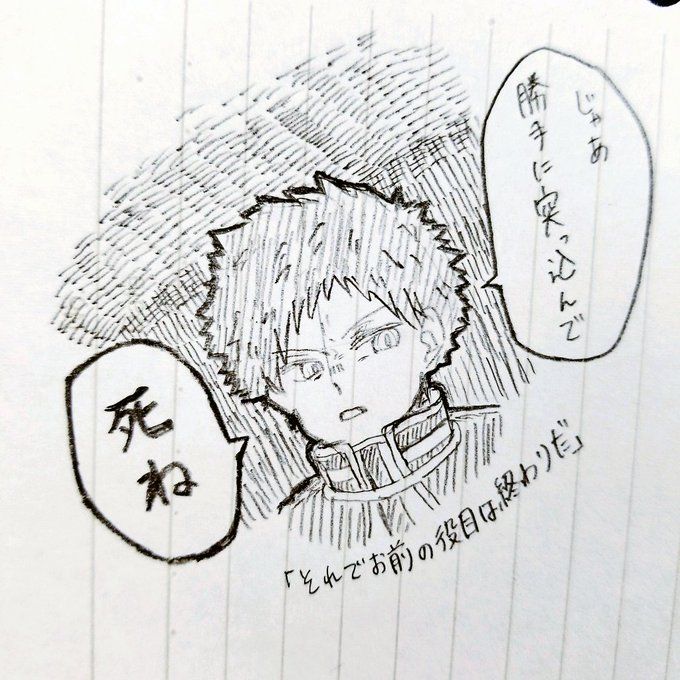 じゃあ
勝手に突っ込んで
死ね
「それでお前の役目は終わりだ」